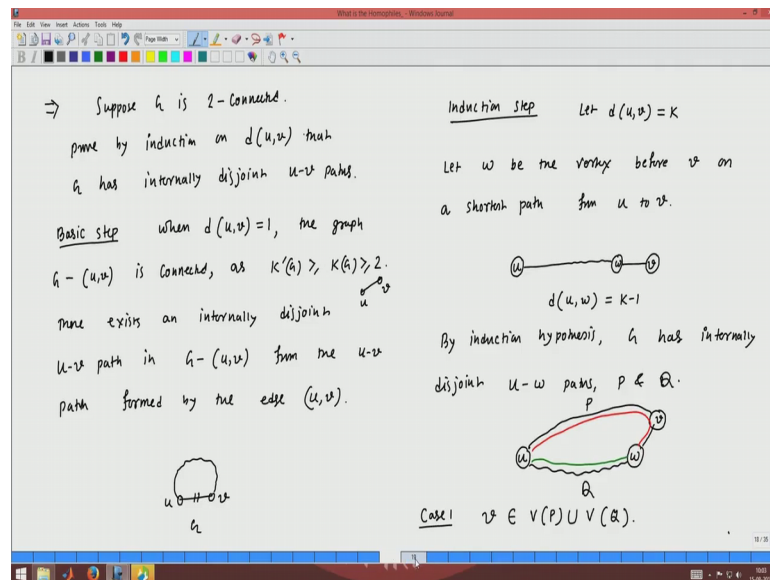 What is the Homophiles_ - Windows Journal
File Edit View Insert Actions Tools Help
Page Width
B I
=> Suppose G is 2-Connected.
prove by induction on d(u,v) that
G has internally disjoint u-v paths.
Basic step when d(u,v)=1, the graph
G-(u,v) is Connected, as K'(G) ≥, K(G) ≥, 2.
u v
There exists an internally disjoint
u-v path in G-(u,v) from the u-v
path formed by the edge (u,v).
u v
G
Induction Step Let d(u,v) = K
Let w be the vertex before v on
a shortest path from u to v.
u w v
d(u,w) = K-1
By induction hypothesis, G has internally
disjoint u-w paths, P & Q.
P
u v
w
Q
Case 1 v ∈ V(P) ∪ V(Q).
18 / 35
18
10:03